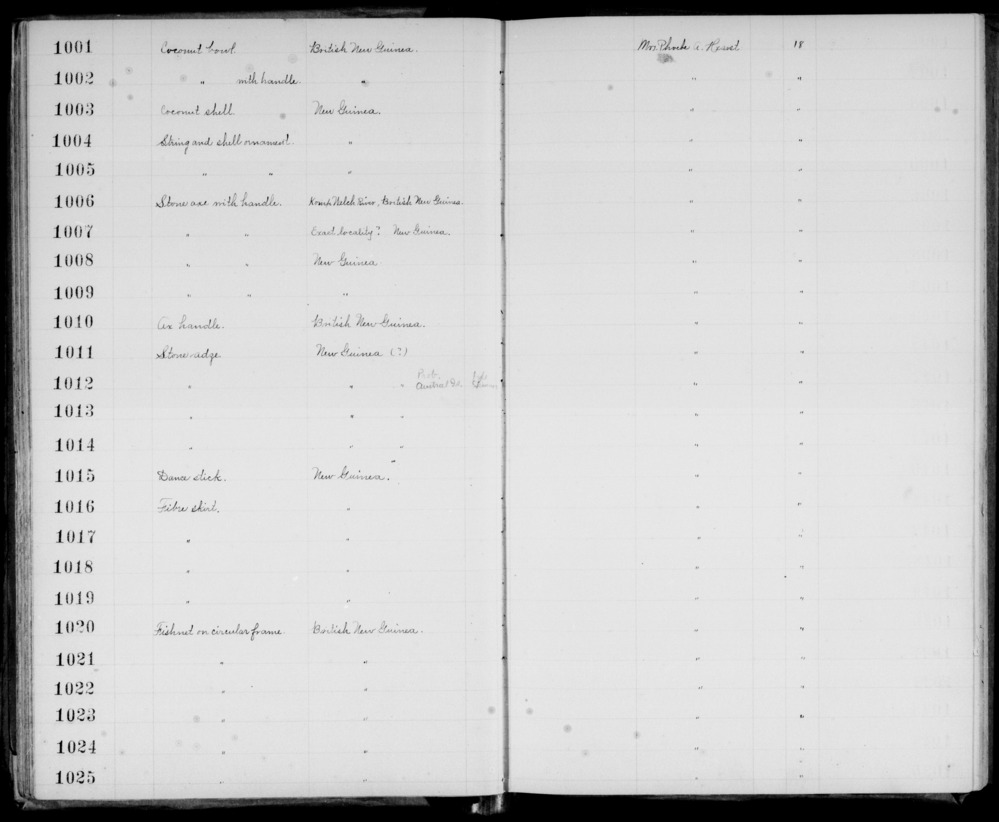 1001 Coconut bowl British New Guinea. Mrs. Phoebe A. Hearst 18
1002 " with handle " " "
1003 Coconut shell New Guinea. " "
1004 String and shell ornament. " " "
1005 " " " " "
1006 Stone axe with handle. River, British New Guinea. " "
1007 " " Exact locality? New Guinea. " "
1008 " " New Guinea " "
1009 " " " " "
1010 Ax handle. British New Guinea. " "
1011 Stone adze New Guinea (?) " "
1012 " " " Prob. Austral Isl. " "
1013 " " " " "
1014 " " " " "
1015 Dance stick. New Guinea. " "
1016 Fibre skirt. " " "
1017 " " " "
1018 " " " "
1019 " " " "
1020 Fishnet on circular frame British New Guinea. " "
1021 " " " "
1022 " " " "
1023 " " " "
1024 " " " "
1025 " " " "